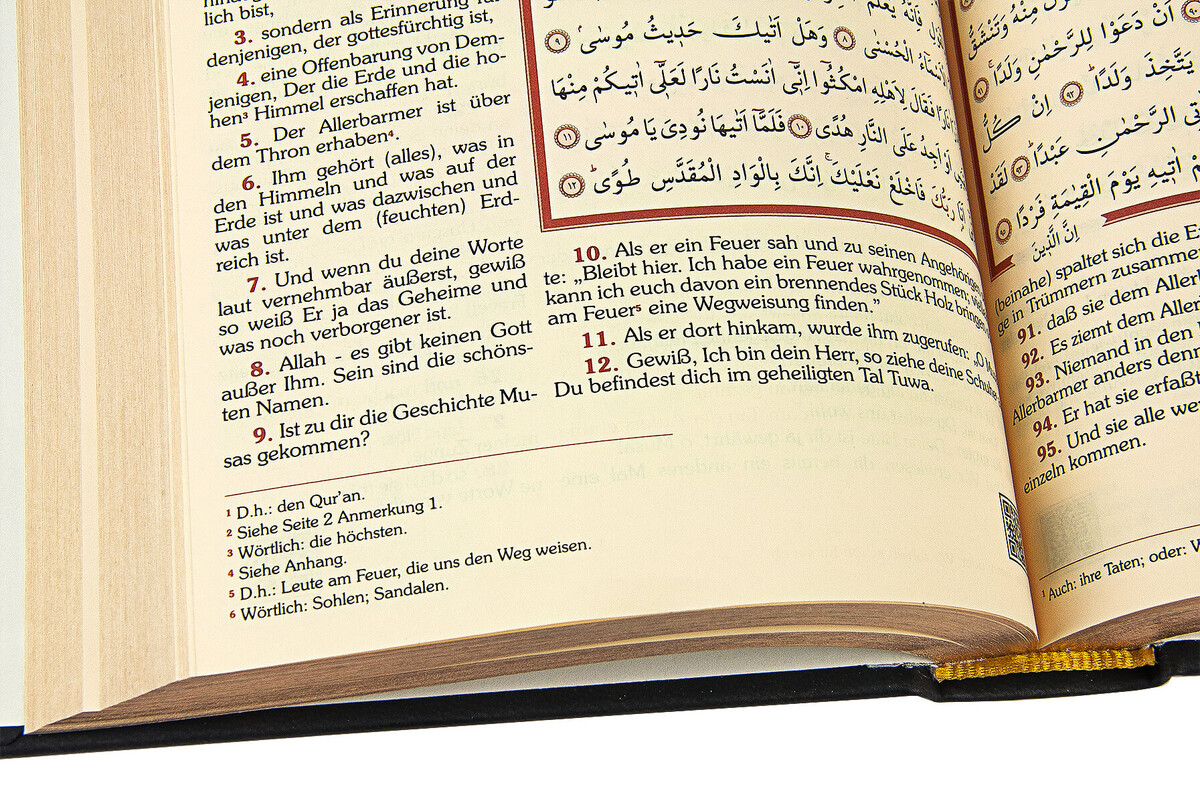 lich bist,
3. sondern als Erinnerung für
denjenigen, der gottesfürchtig ist,
4. eine Offenbarung von Dem-
jenigen, Der die Erde und die ho-
hen³ Himmel erschaffen hat.
5. Der Allerbarmer ist über
dem Thron erhaben⁴.
6. Ihm gehört (alles), was in
den Himmeln und was auf der
Erde ist und was dazwischen und
was unter dem (feuchten) Erd-
reich ist.
7. Und wenn du deine Worte
laut vernehmbar äußerst, gewiß
so weiß Er ja das Geheime und
was noch verborgener ist.
8. Allah - es gibt keinen Gott
außer Ihm. Sein sind die schöns-
ten Namen.
9. Ist zu dir die Geschichte Mu-
sas gekommen?
فَاِنَّهُ يَعْلَمُ
الْاَسْمَٓاءُ الْحُسْنٰى ٨ وَهَلْ اَتٰيكَ حَد۪يثُ مُوسٰى ٩
نَارًا فَقَالَ لِاَهْلِهِ امْكُثُٓوا اِنّ۪ٓي اٰنَسْتُ نَارًا لَعَلّ۪ٓي اٰت۪يكُمْ مِنْهَا
اَوْ اَجِدُ عَلَى النَّارِ هُدًى ١٠ فَلَمَّٓا اَتٰيهَا نُودِيَ يَا مُوسٰى ١١
اَنَا۬ رَبُّكَ فَاخْلَعْ نَعْلَيْكَۚ اِنَّكَ بِالْوَادِ الْمُقَدَّسِ طُوًىۜ ١٢
10. Als er ein Feuer sah und zu seinen Angehörigen
te: „Bleibt hier. Ich habe ein Feuer wahrgenommen;
kann ich euch davon ein brennendes Stück Holz bringen
am Feuer⁵ eine Wegweisung finden.”
11. Als er dort hinkam, wurde ihm zugerufen: „O
12. Gewiß, Ich bin dein Herr, so ziehe deine Schuhe
Du befindest dich im geheiligten Tal Tuwa.
¹ D.h.: den Qur’an.
² Siehe Seite 2 Anmerkung 1.
³ Wörtlich: die höchsten.
⁴ Siehe Anhang.
⁵ D.h.: Leute am Feuer, die uns den Weg weisen.
⁶ Wörtlich: Sohlen; Sandalen.
مِنْهُ وَتَنْشَقُّ
اَنْ دَعَوْا لِلرَّحْمٰنِ وَلَدًاۚ ٩١
يَتَّخِذَ وَلَدًاۜ ٩٢ اِنْ كُلُّ
الرَّحْمٰنِ عَبْدًاۜ ٩٣ لَقَدْ
اٰت۪يهِ يَوْمَ الْقِيٰمَةِ فَرْدًا ٩٥
اِنَّ الَّذ۪ينَ
(beinahe) spaltet sich die
ge in Trümmern zusammen
91. daß sie dem
92. Es ziemt dem
93. Niemand in den
Allerbarmer anders denn
94. Er hat sie erfaßt
95. Und sie alle
einzeln kommen.
¹ Auch: ihre Taten; oder: